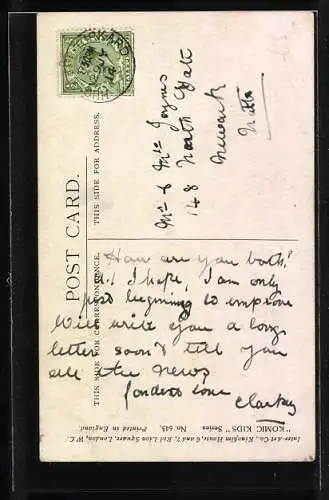 POST CARD.
THIS SIDE FOR ADDRESS.
Mr & Mrs Joynes
148 North Gate
Newark
Notts
THIS SIDE FOR CORRESPONDENCE.
How are you both?
I hope, I am only
just beginning to emprove
Will write you a long
letter soon & tell you
all the news
fondest love
"KOMIC KIDS" Series. No. 643. Printed in England.
Inter-Art Co., Kingjim House, 6 and 7, Red Lion Square, London, W.C.